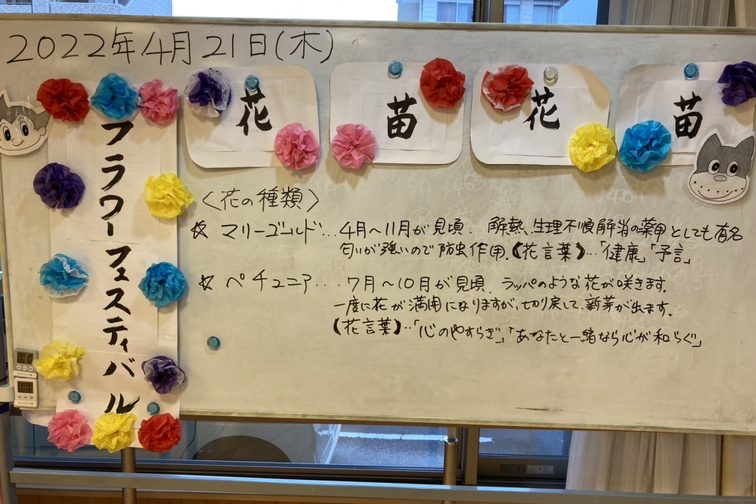 2022年4月21日(木)
花 苗 花 苗
フラワーフェスティバル
〈花の種類〉
☆ マリーゴールド… 4月〜11月が見頃. 解熱、生理不順解消の薬用としても有名
匂いが強いので防虫作用.【花言葉】…「健康」「予言」
☆ ペチュニア… 7月〜10月が見頃. ラッパのような花が咲きます.
一度に花が満開になりますが、切り戻して、新芽が出ます.
【花言葉】…「心のやすらぎ」、「あなたと一緒なら心が和らぐ」